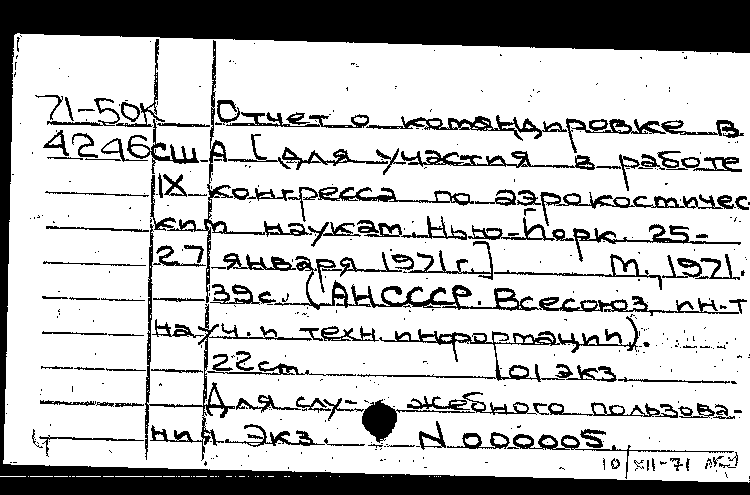 71-50К Отчет о командировке в
4246 США [для участия в работе
IX конгресса по аэрокосмичес
ким наукам. Нью-Йорк. 25-
27 января 1971г.] М., 1971.
39с. (АН СССР. Всесоюз. ин-т
науч. и техн. информации).
22см. 101 экз.
Для слу- жебного пользова-
ния. Экз. N 000005.
10/XII-71